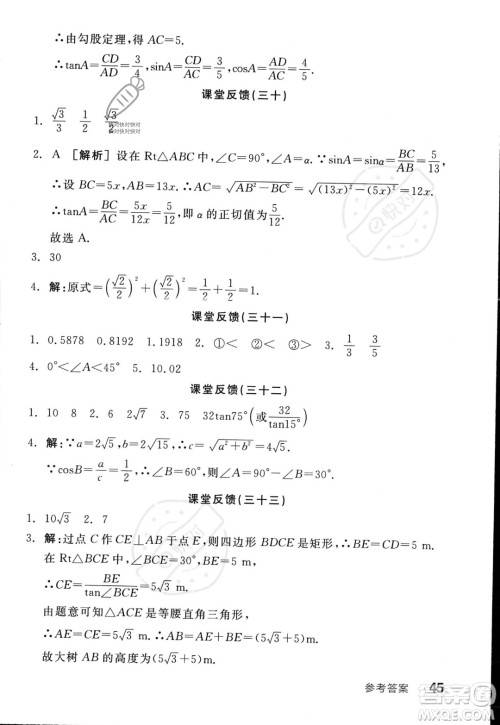 ∴由勾股定理，得 AC=5.
∴tanA=CD/AD=3/4，sinA=CD/AC=3/5，cosA=AD/AC=4/5.
课堂反馈(三十)
1. √3/3 1/2
2. A [解析] 设在 Rt△ABC 中，∠C=90°，∠A=α，
∵sinα=5/13，∴sinα=BC/AB=5/13，
∴设 BC=5x，AB=13x，∴AC=√(AB²−BC²)=√((13x)²−(5x)²)=12x.
∴tanA=BC/AC=5x/12x=5/12，即 α 的正切值为 5/12.
故选 A.
3. 30
4. 解：原式=(√2/2)²+(√2/2)²=1/2+1/2=1.
课堂反馈(三十一)
1. 0.5878 0.8192 1.1918 2. ①< ②< ③> 3. 1/3 3/5
4. 0°<∠A<45° 5. 10.02
课堂反馈(三十二)
1. 10 8 2. 2√5 3. 32tan75°(或32/tan15°)
4. 解：∵a=2√5，b=2√15，∴c=√(a²+b²)=4√5.
∵cosB=a/c=1/2，∴∠B=60°，∴∠A=30°.
课堂反馈(三十三)
1. 10√3 2. 7
3. 解：过点 C 作 CE⊥AB 于点 E，则四边形 BDCE 是矩形，∴BE=CD=5 m.
在 Rt△BCE 中，∵BE=5 m，∠BCE=30°，
∴CE=BE/tan∠BCE=5√3 m.
由题意可知△ACE 是等腰直角三角形，
∴AE=CE=5√3 m，∴AB=AE+BE=(5√3+5)m.
故大树 AB 的高度为(5√3+5)m.
参考答案 45